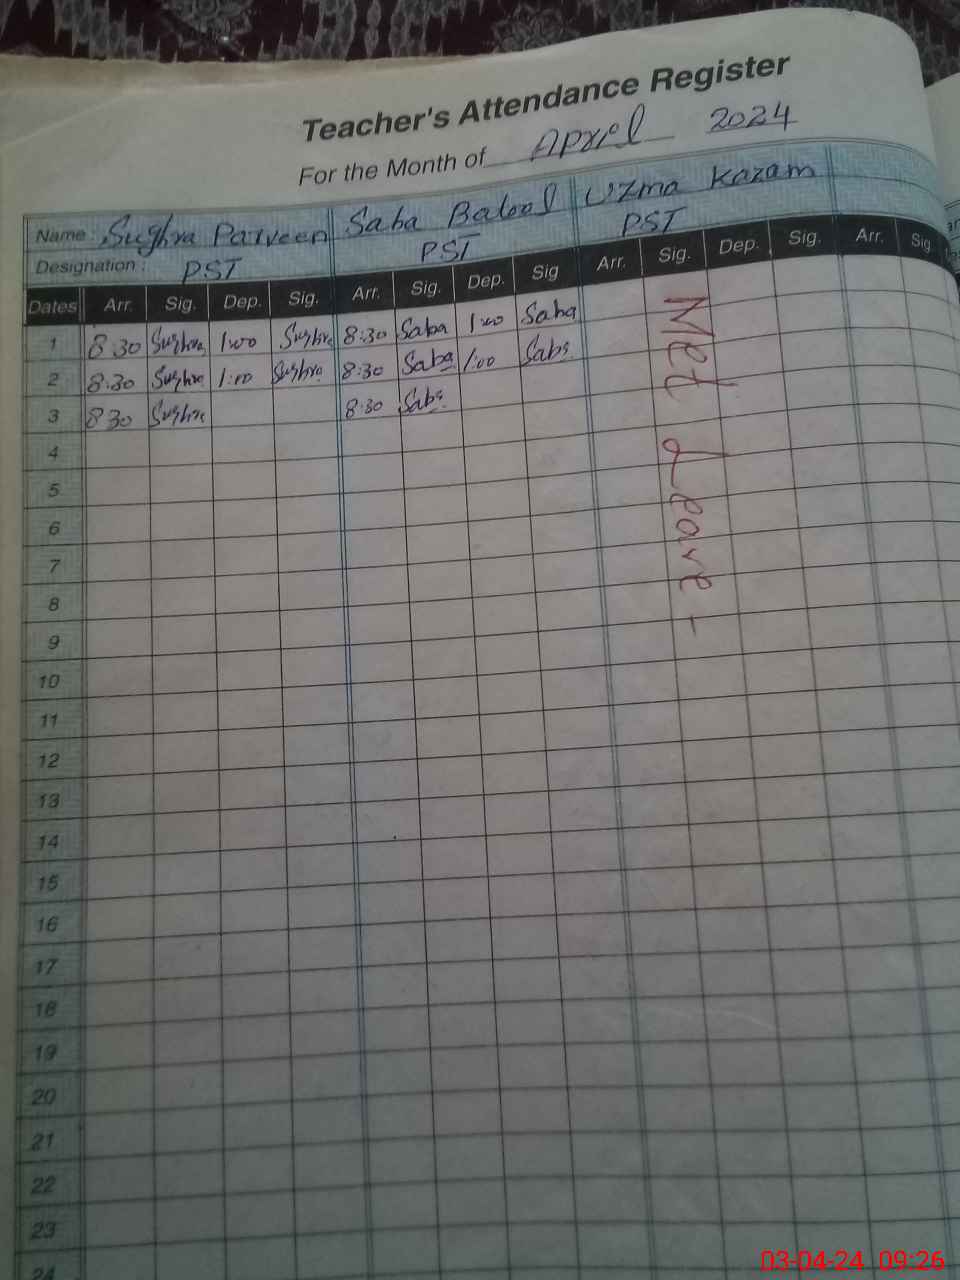 Teacher's Attendance Register
For the Month of April 2024
Name : Sughra Parveen Saba Batool Uzma Kazam
Designation : PST PST PST
Dates Arr. Sig. Dep. Sig. Arr. Sig. Dep. Sig Arr. Sig. Dep. Sig. Arr. Sig.
1 8:30 Sughra 1:00 Sughra 8:30 Saba 1:00 Saba
2 8:30 Sughra 1:00 Sughra 8:30 Saba 1:00 Saba
3 8:30 Sughra 8:30 Saba
Met Leave -
4
5
6
7
8
9
10
11
12
13
14
15
16
17
18
19
20
21
22
23
24
03-04-24 09:26